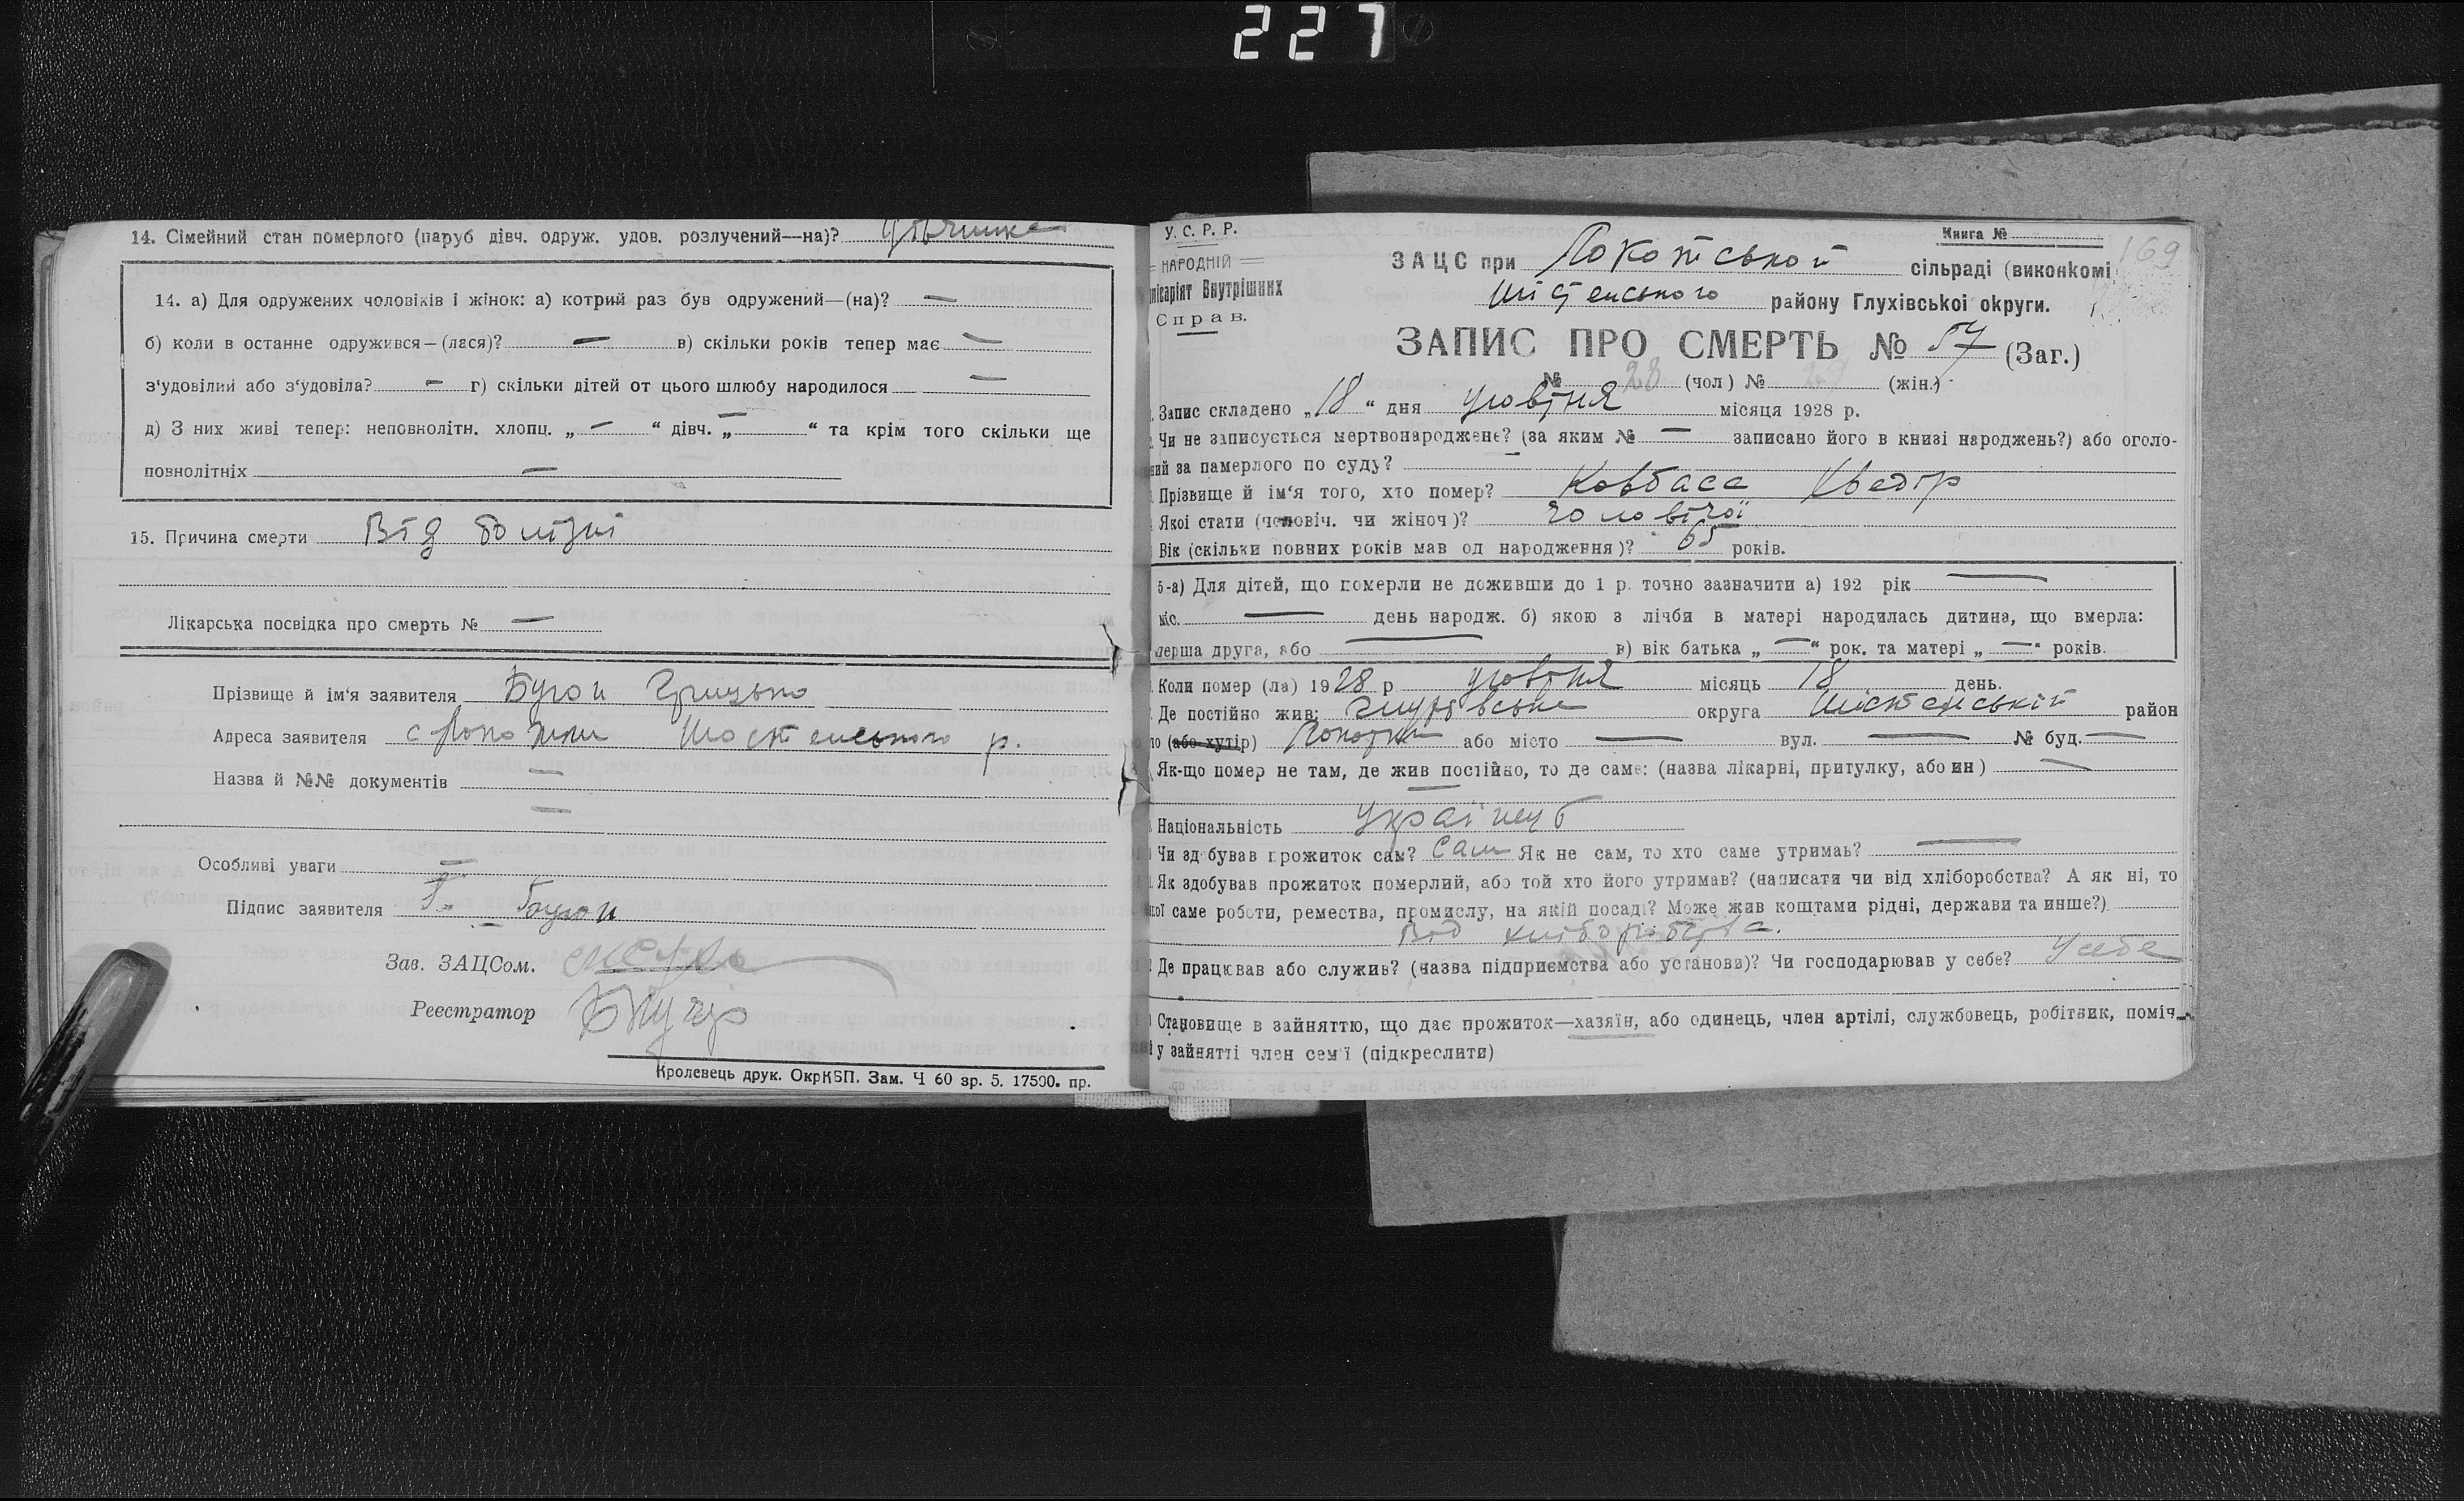 227
14. Сімейний стан померлого (паруб дівч. одруж. удов. розлучений—на)?
14. а) Для одружених чоловіків і жінок: а) котрий раз був одружений—(на)? —
б) коли в останне одружився—(лася)? — в) скільки років тепер має —
з'удовілий або з'удовіла? — г) скільки дітей от цього шлюбу народилося —
д) З них живі тепер: неповнолітн. хлопц. „ — “ дівч. „ — “ та крім того скільки ще
повнолітніх —
15. Причина смерти Від болізні
Лікарська посвідка про смерть № —
Прізвище й ім'я заявителя Грицько
Адреса заявителя с Шостенського р.
Назва й №№ документів —
—
Особливі уваги —
Підпис заявителя
Зав. ЗАЦСом.
Реєстратор
Кролевець друк. ОкрКВП. Зам. Ч 60 зр. 5. 17500. пр.
У. С. Р. Р.
НАРОДНІЙ
ікаріят Внутрішних
Справ.
Книга №
169
ЗАЦС при сільраді (виконкомі
району Глухівської округи.
ЗАПИС ПРО СМЕРТЬ № 57 (Заг.)
№ 28 (чол) № 29 (жін.)
Запис складено „18“ дня жовтня місяця 1928 р.
Чи не записується мертвонароджене? (за яким № — записано його в книзі народжень?) або оголо-
ий за памерлого по суду? —
Прізвище й ім'я того, хто помер? Ковбаса Хведір
Якої стати (человіч. чи жіноч)? чоловічої
Вік (скільки повних років мав од народження)? 65 років.
5-а) Для дітей, що померли не доживши до 1 р. точно зазначити а) 192 рік —
міс. — день народж. б) якою з лічби в матері народилась дитина, що вмерла:
перша друга, або — в) вік батька „ — “ рок. та матері „ — “ років.
Коли помер (ла) 1928 р жовтня місяць 18 день.
Де постійно жив: Глухівське округа район
(або хутір) або місто — вул. — № буд. —
Як-що помер не там, де жив постійно, то де саме: (назва лікарні, притулку, або ин) —
Національність
Чи здобував прожиток сам? Сам Як не сам, то хто саме утримав? —
Як здобував прожиток померлий, або той хто його утримав? (написати чи від хліборобства? А як ні, то
кої саме роботи, ремества, промислу, на якій посаді? Може жив коштами рідні, держави та инше?)
Від хліборобства.
Де працював або служив? (назва підприємства або установи)? Чи господарював у себе? У себе
Становище в зайняттю, що дає прожиток—хазяїн, або одинець, член артілі, службовець, робітник, поміч.
у зайнятті член сем'ї (підкреслити)